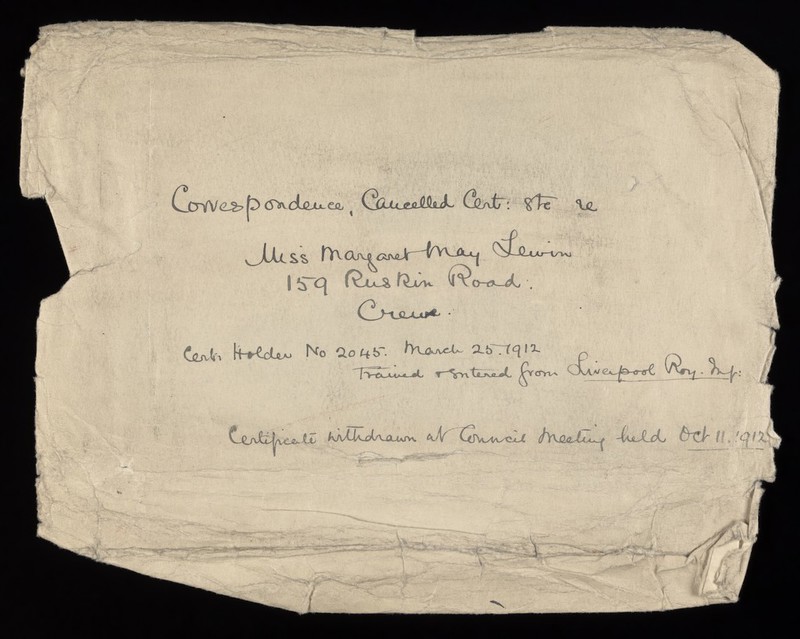 Correspondence, Cancelled Cert: etc re
Miss Margaret May Lewin
159 Ruskin Road.
Crewe.
Cert. Holder No 2045. March 25. 1912
Trained & entered from Liverpool Roy. Inf:
Certificate withdrawn at Council Meeting held Oct 11. 1912